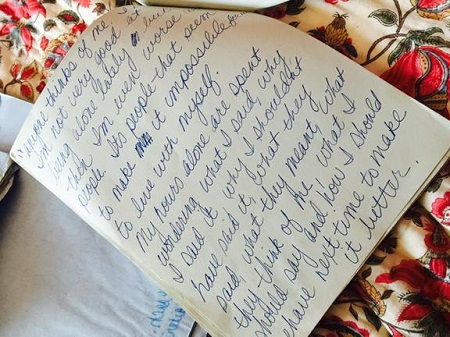 anyone thinks of me.
I'm not very good at
being alone lately
then I'm even worse
people. Its people that seem
to make it impossible for
to live with myself.
My hours alone are spent
wondering what I said, why
I said it, why I shouldnt
have said it. What they
said, what they meant, what
they think of me, what I
should say and how I should
behave next time to make
it better.